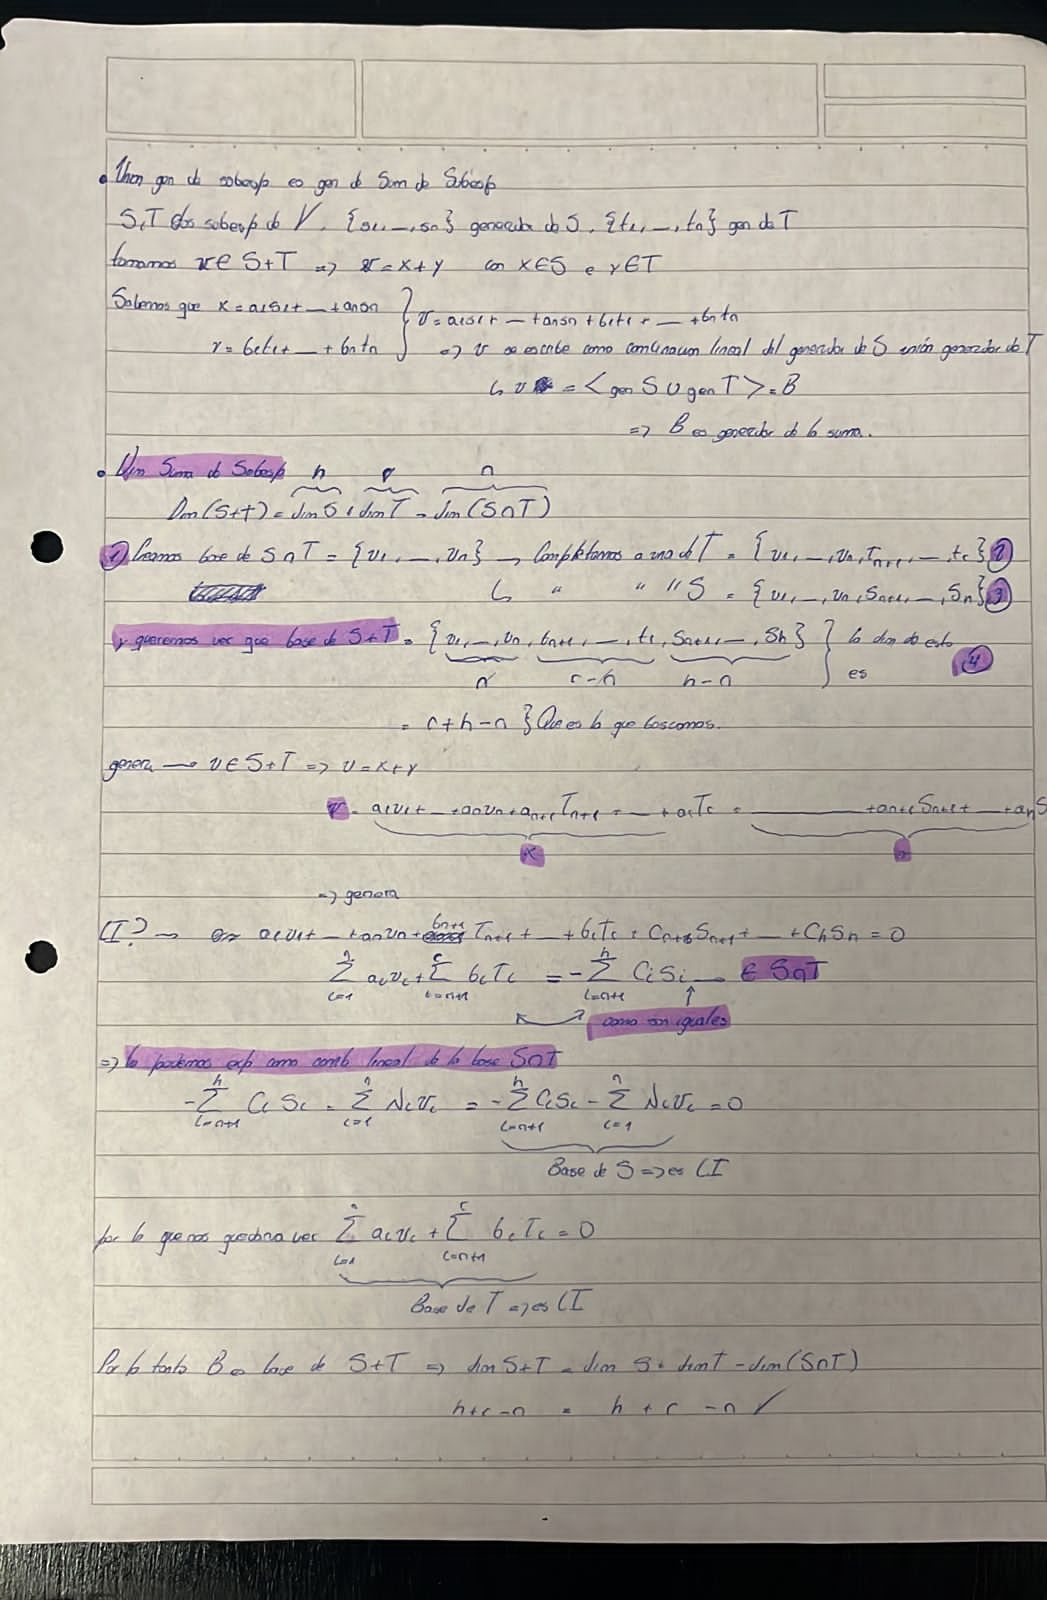 • Union gen de subesp es gen de Sum de Subesp
S,T dos subesp de V. {s1, —, sn} generador de S, {t1, —, tn} gen de T
tomamos v∈ S+T => v = x+y con x∈S e y∈T
Sabemos que x = a1s1+ — +ansn } v = a1s1+ — +ansn + b1t1 + — +bntn
y = b1t1+ — + bntn => v se escribe como combinacion lineal del generador de S unión generador de T
↳ v = <gen S ∪ gen T> = B
=> B es generador de la suma.
• Dim Suma de Subesp h r n
Dim(S+T) = dim S + dim T - dim(S∩T)
1) Creamos base de S∩T = {v1, —, vn} → Completamos a una de T = {v1, —, vn, Tn+1, —, tr} 2
↳ " " " S = {v1, —, vn, Sn+1, —, Sh} 3
y queremos ver que base de S+T = {v1, —, vn, tn+1, —, tr, Sn+1, —, Sh} } la dim de esto es 4
n r-n h-n
= r+h-n } Que es lo que buscamos.
genera → v∈S+T => v = x+y
v = a1v1+ — +anvn+an+1Tn+1 + — + arTr + ——— +an+1Sn+1+ — +ahS
x
=> genera
LI? → a1v1+ — +anvn+ bn+1 Tn+1 + — + brTr + Cn+1Sn+1 + — + ChSh = 0
n∑i=1 aivi + r∑i=n+1 biTi = - h∑i=n+1 CiSi → ∈ S∩T
como son iguales
=> lo podemos exp como comb lineal de la base S∩T
- h∑i=n+1 CiSi = n∑i=1 λivi = - h∑i=n+1 CiSi - n∑i=1 λivi = 0
Base de S => es LI
por lo que nos quedaria ver n∑i=1 aivi + r∑i=n+1 biTi = 0
Base de T => es LI
Por lo tanto B es base de S+T => dim S+T = dim S + dim T - dim(S∩T)
h+r-n = h + r - n ✓